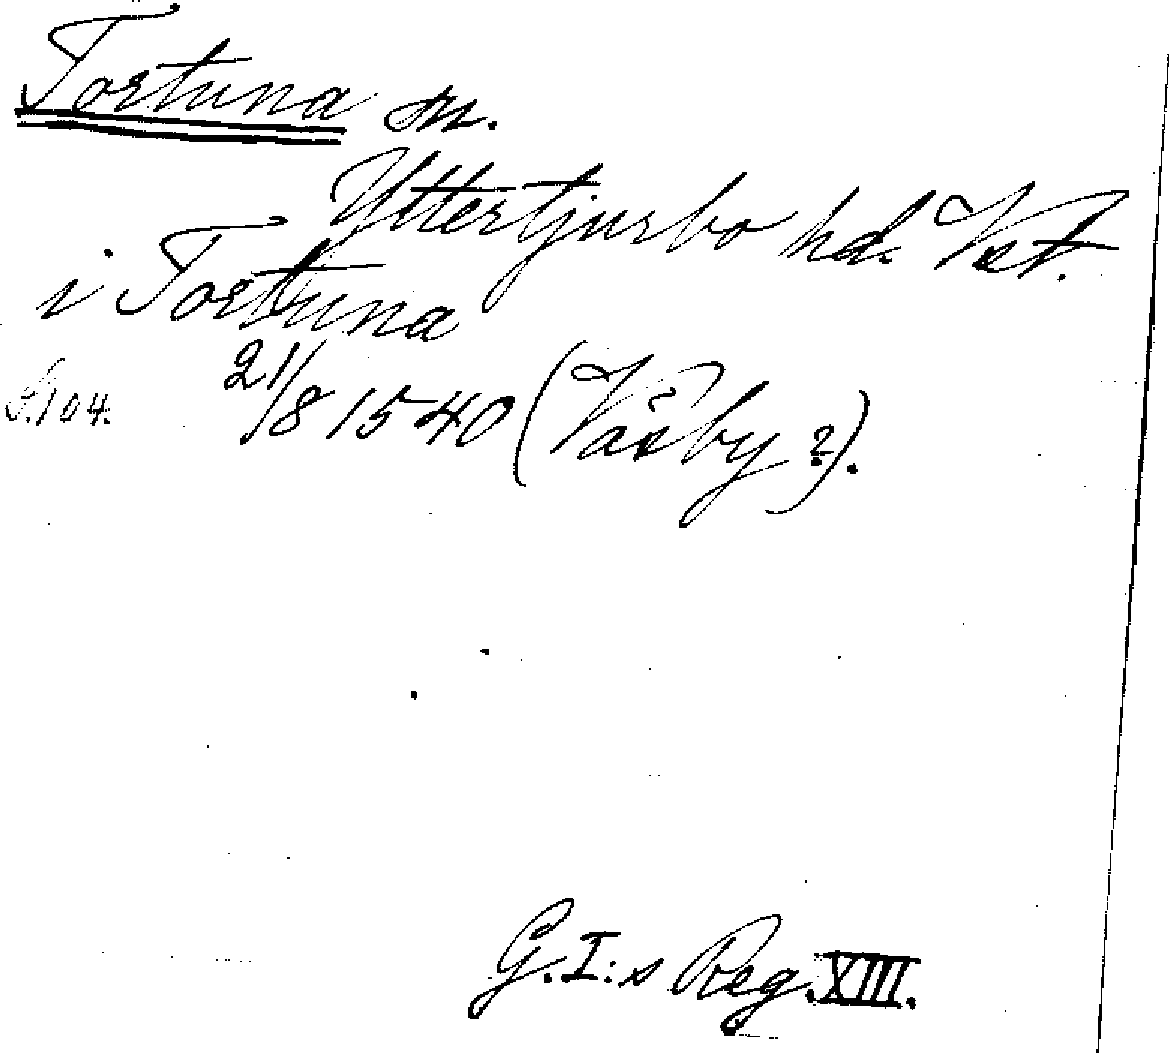 Tortuna sn.
Yttertjurbo hd. Vst.
i Tortuna
s. 104. 21/8 1540 (Väsby?).
G.I:s Reg. XIII.